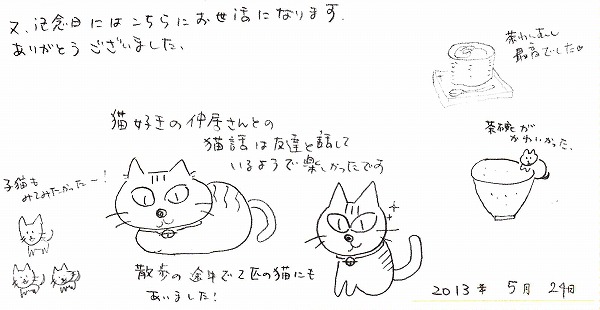 又、記念日にはこちらにお世話になります。
ありがとうございました。
茶わんむし
最高でした
猫好きの仲居さんとの
猫話は友達と話して
いるようで楽しかったです
茶碗が
かわいかった、
子猫も
みてみたかったー!
散歩の途中で2匹の猫にも
あいました!
2013年 5月 24日